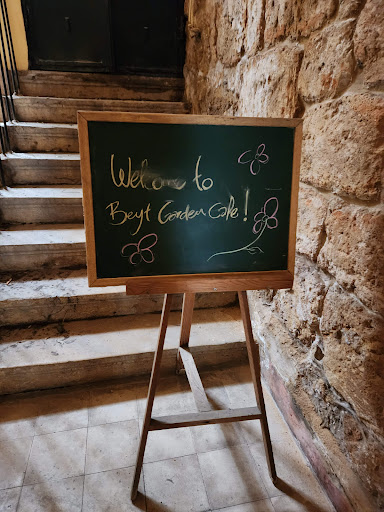 Welcome to
Beyt Garden Cafe!